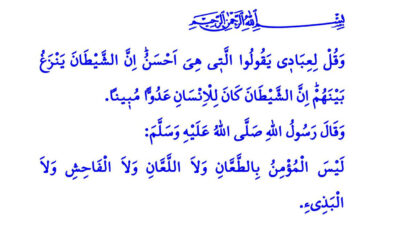 بِسْمِ اللهِ الرَّحْمٰنِ الرَّحِيمِ
وَقُلْ لِعِبَادٖى يَقُولُوا الَّتٖى هِىَ اَحْسَنُؕ اِنَّ الشَّيْطَانَ يَنْزَغُ
بَيْنَهُمْؕ اِنَّ الشَّيْطَانَ كَانَ لِلْاِنْسَانِ عَدُوًّا مُبٖينًا.
وَقَالَ رَسُولُ اللهِ صَلَّى اللهُ عَلَيْهِ وَسَلَّمَ:
لَيْسَ الْمُؤْمِنُ بِالطَّعَّانِ وَلاَ اللَّعَّانِ وَلاَ الْفَاحِشِ وَلاَ
الْبَذِىءِ.